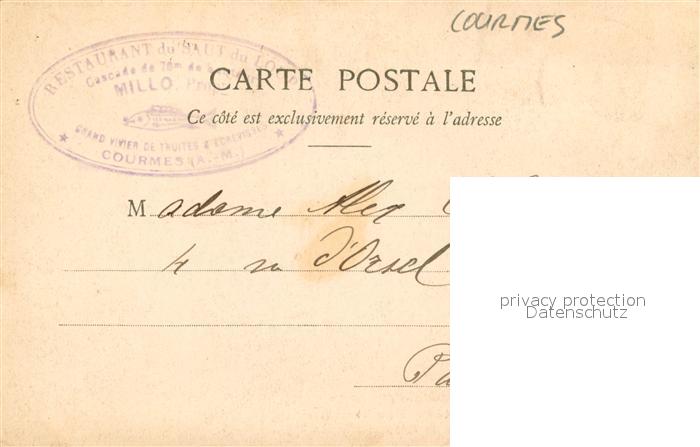 COURMES
RESTAURANT du SAUT du LOUP
Cascade de
MILLO,
GRAND VIVIER DE TRUITES & ECREVISSES
COURMES (A.-M.)
CARTE POSTALE
Ce côté est exclusivement réservé à l'adresse
Madame Alex
4 d'Orsel
Pa
privacy protection
Datenschutz